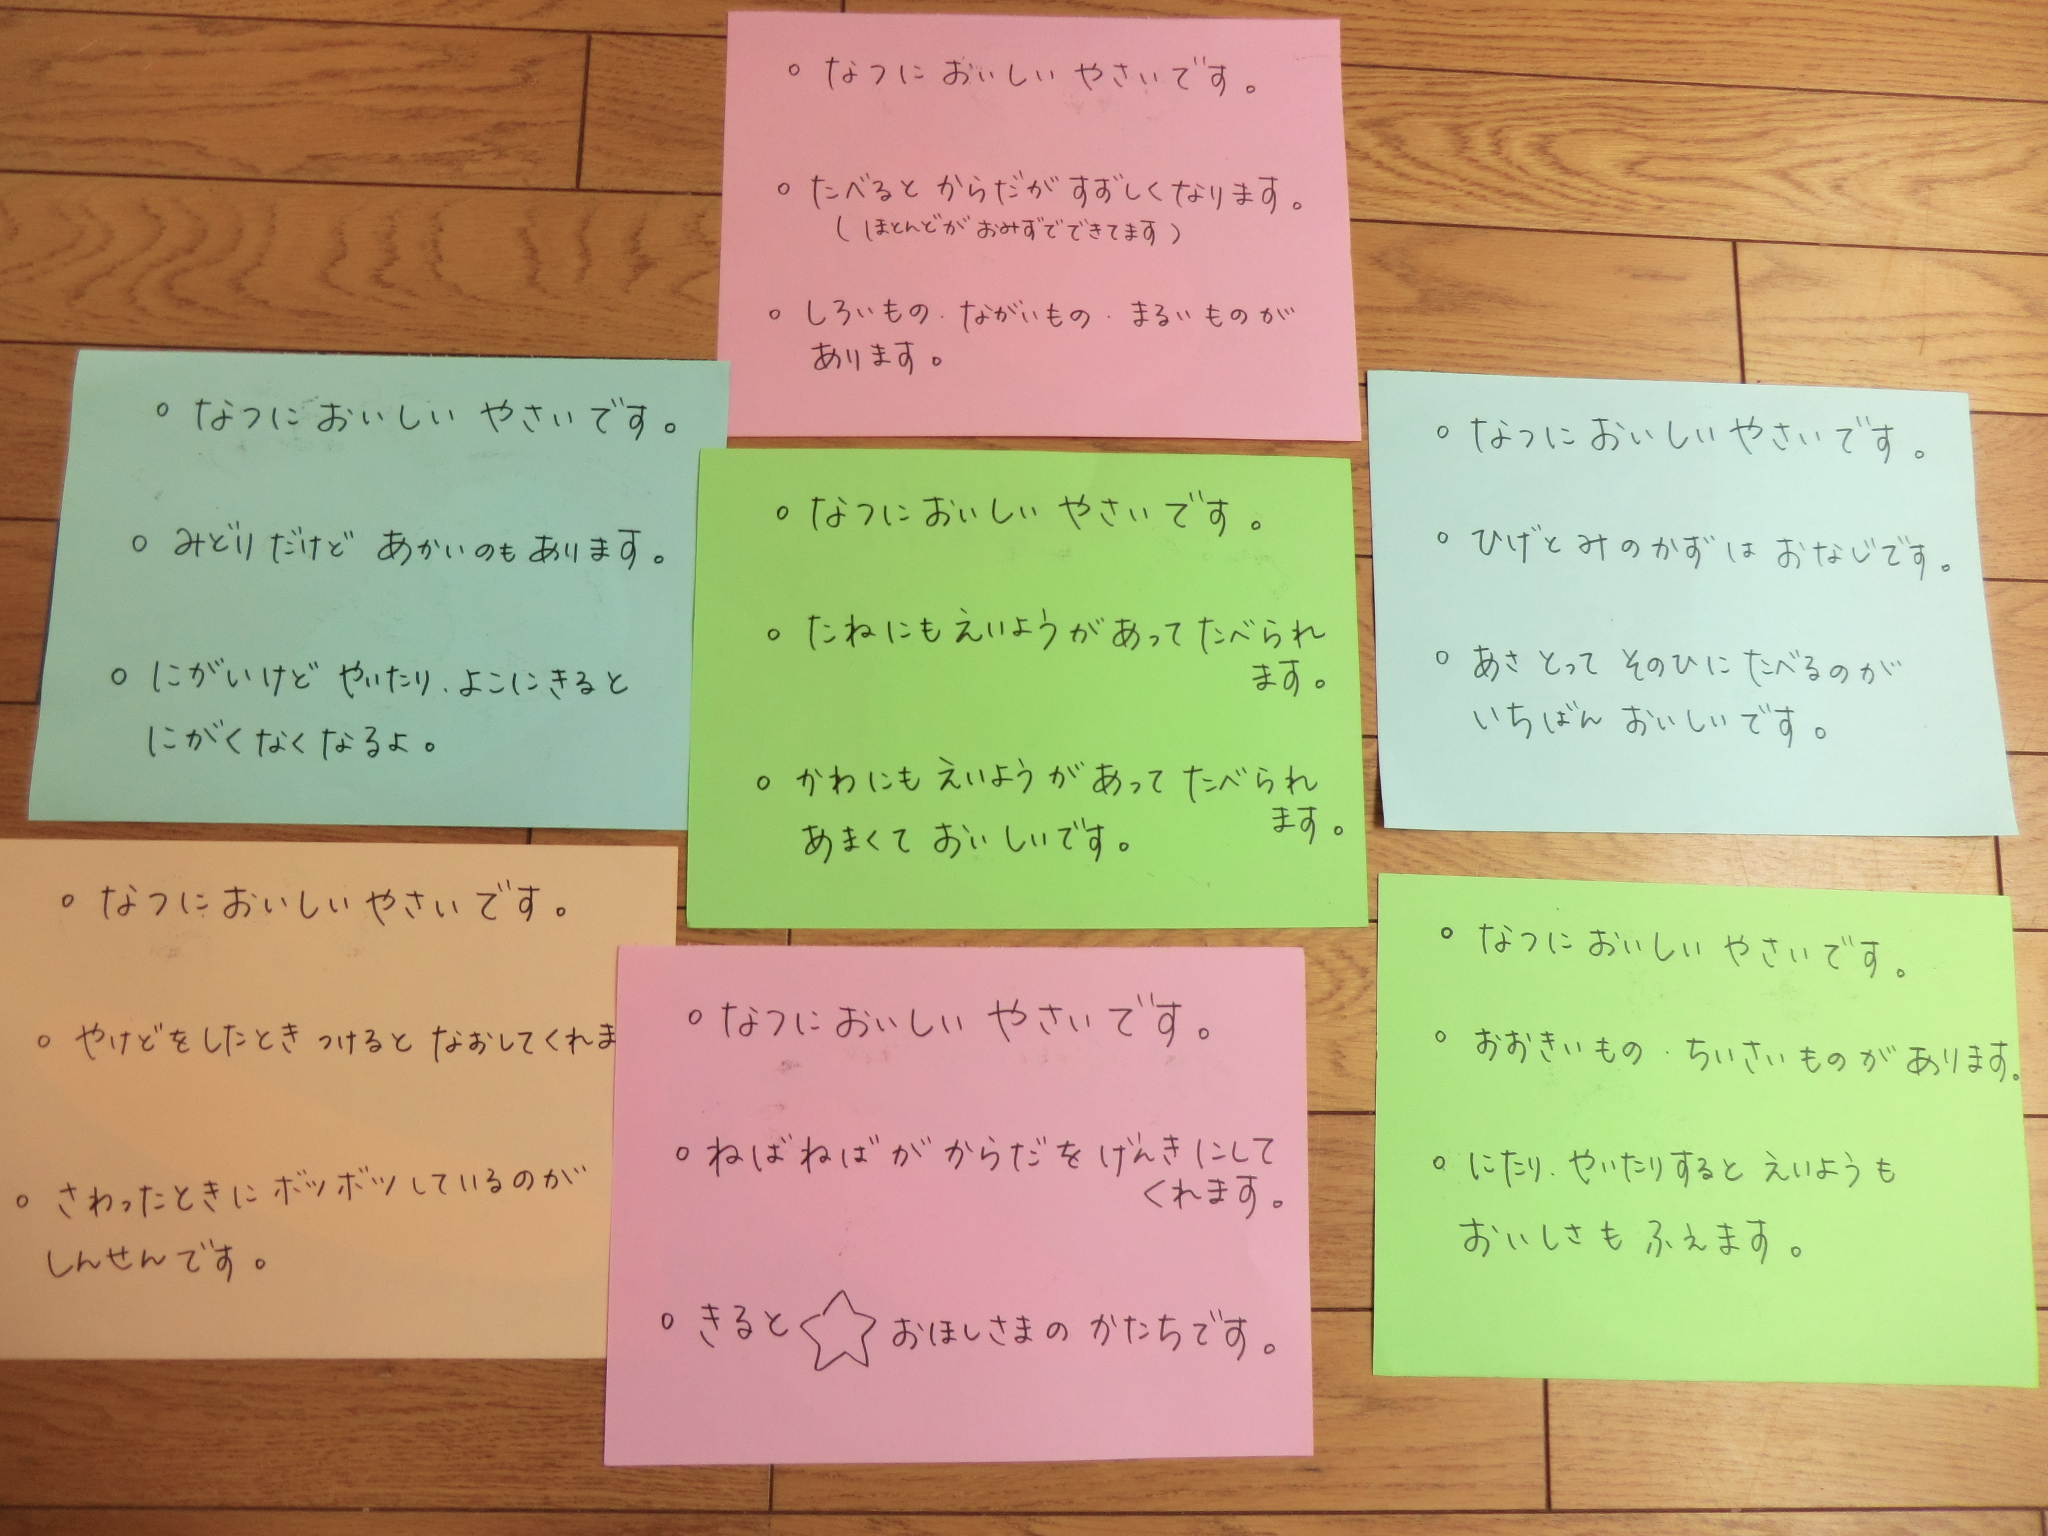 ○ なつに おいしい やさいです。
○ たべると からだが すずしくなります。
（ほとんどが おみずでできてます）
○ しろいもの・ながいもの・まるいものが
あります。
○ なつに おいしい やさいです。
○ みどりだけど あかいのもあります。
○ にがいけど やいたり・よこにきると
にがくなくなるよ。
○ なつに おいしい やさいです。
○ たねにもえいようがあって たべられ
ます。
○ かわにも えいようがあって たべられ
ます。
あまくて おいしいです。
○ なつに おいしい やさいです。
○ ひげと みのかずは おなじです。
○ あさ とって そのひに たべるのが
いちばん おいしいです。
○ なつに おいしい やさいです。
○ やけどをしたとき つけると なおしてくれま
○ さわったときに ボツボツしているのが
しんせんです。
○ なつに おいしい やさいです。
○ ねばねばが からだを げんきにして
くれます。
○ きると ☆ おほしさまの かたちです。
○ なつに おいしい やさいです。
○ おおきいもの・ちいさいものが あります。
○ にたり・やいたりすると えいようも
おいしさも ふえます。